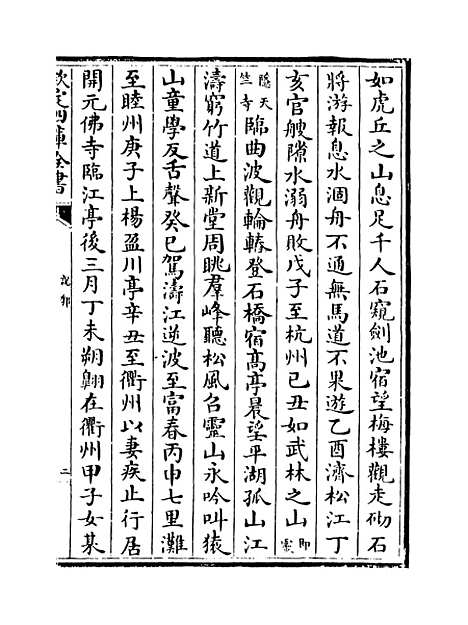 如虎丘之山息足千人石窺劍池宿望梅樓觀走砌石
將游報息水涸舟不通無馬道不果遊乙酉濟松江丁
亥官艘隙水溺舟敗戊子至杭州己丑如武林之山即靈
隱天竺寺臨曲波觀輪轃登石橋宿高亭晨望平湖孤山江
濤窮竹道上新堂周眺羣峰聽松風召靈山永吟叫猿
山童學反舌聲癸巳駕濤江逆波至富春丙申七里灘
至睦州庚子上楊盈川亭辛丑至衢州以妻疾止行居
開元佛寺臨江亭後三月丁未朔翶在衢州甲子女某
欽定四庫全書
說郛
二